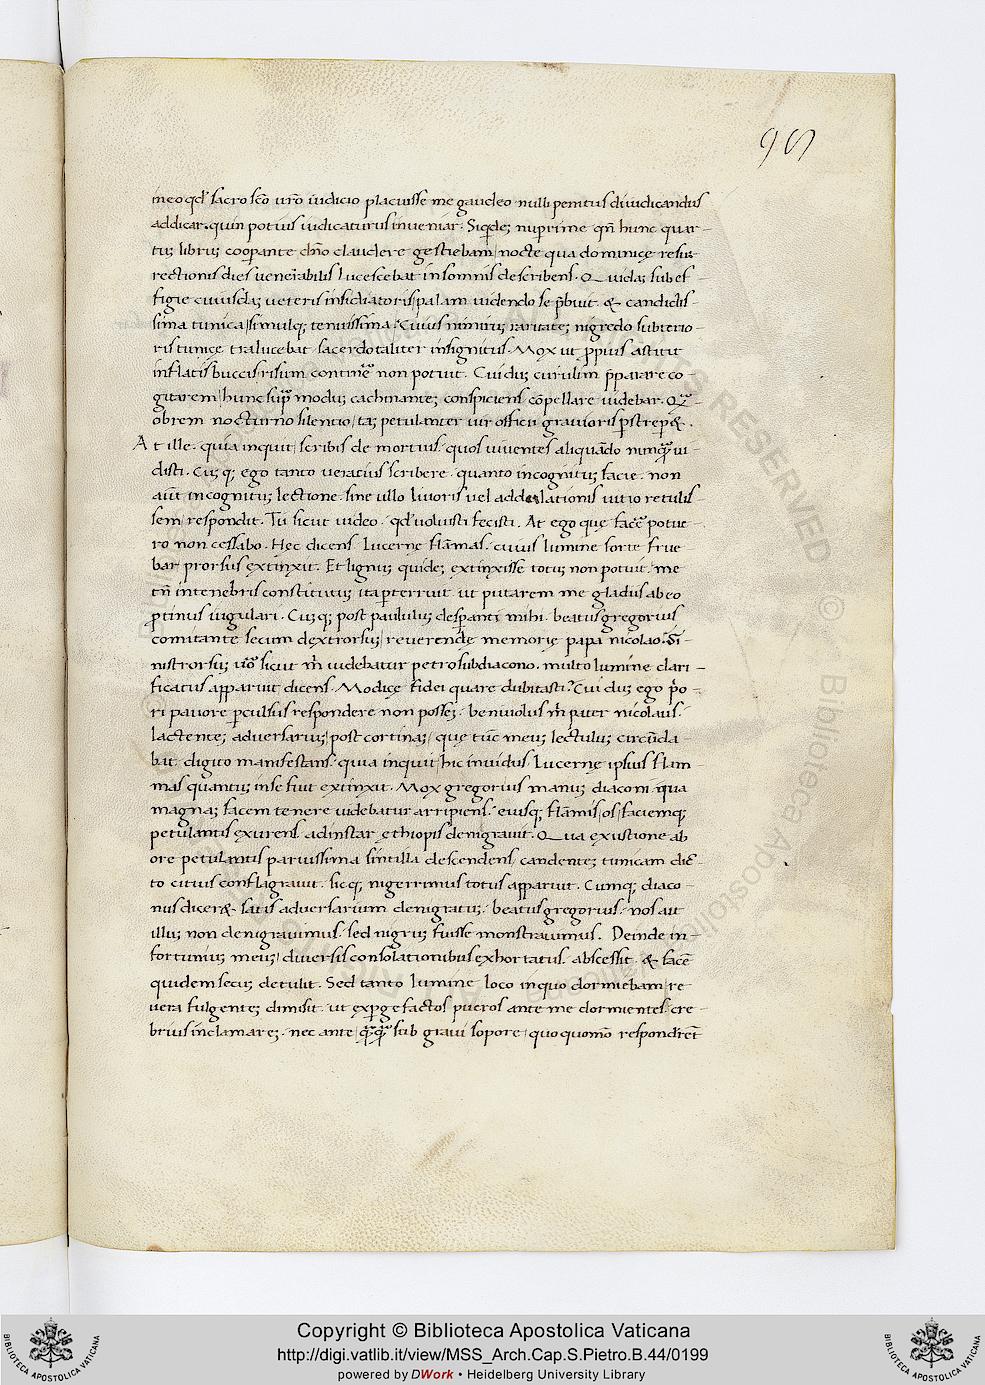 95
in eo qd' sacro scō uro iudicio placuisse me gaudeo nulli penitus diiudicandus
addicar. quin potius iudicaturus inueniar. Siqdeȝ nup rime qñ hunc quar-
tuȝ libruȝ cooperante dn̄o claudere gestiebam, nocte qua dominicę resur-
rectionis dies uenerabilis lucescebat in somnis describens. Quidaȝ sub ef-
figie cuiusdaȝ ueteris insidiatoris palam uidendo se p̄buit. & candidis-
sima tunica, simulq; tenuissima. Cuius nimiruȝ raritateȝ nigredo subterio-
ris tunicę tralucebat sacerdotaliter insignitus. Mox ut ppius astitit
inflatis buccis risum continere non potuit. Cui duȝ curulim p̄parare co-
gitarem, hunc sup modum cachinanteȝ conspiciens cōpellare uidebar. Qȝ
obrem nocturno silentio, taȝ petulanter uir officii grauioris pstreper&.
At ille. quia inquit, scribis de mortuis. quos uiuentes aliquādo nunqȝ ui-
disti. Cuȝ q; ego tanto ueracius scribere. quanto incognitus facie. non
aūt incognitus lectione. sine ullo liuoris uel addulationis uitio retulis-
sem, respondit. Tu sicut uideo. qd' uoluisti fecisti. At ego quę facē potue-
ro non cessabo. Hec dicens Lucernę flāmas. cuius lumine forte frue-
bar prorsus extinxit. Et lignuȝ quideȝ extinxisse totuȝ non potuit. me
tn̄ in tenebris constitutuȝ ita pterruit. ut putarem me gladius ab eo
ptinus iugulari. Cuȝ q; post paululuȝ desperanti mihi. beatus gregorius
comitante secum dextrorsuȝ, reuerendę memorię papa nicolao. Si-
nistrorsuȝ uō sicut m̄ uidebatur petro subdiacono. multo lumine clari-
ficatus apparuit dicens. Modicę fidei quare dubitasti? Cui duȝ ego p̄o-
ri pauore pculsus respondere non posseȝ. beniuolus m̄ pater nicolaus.
lactenteȝ aduersarius, post cortinaȝ, quę tūc meuȝ lectuluȝ circūda-
bat digito manifestans. quia inquit, hic inuidus. Lucernę ipsius flam-
mas quantuȝ in se fuit extinxit. Mox gregorius manuȝ diaconi qua
magnaȝ facem tenere uidebatur arripiens. eiusq; flāmis, os, faciemq;
petulantis exurens adinstar ęthiopis denigrauit. Qua exustione ab
ore petulantis paruissima sintilla descendens, candenteȝ tunicam dic-
to citius conflagrauit. sicq; nigerrimus totus apparuit. Cumq; diaco-
nus dicer& satis aduersarium denigratuȝ. beatus gregorius. nos ait
illuȝ non denigrauimus. sed nigruȝ fuisse monstrauimus. Deinde in-
fortunium meuȝ, diuersis consolationibus exhortatus. abscessit. & facē
quidem secuȝ detulit. Sed tanto lumine loco in quo dormiebam, re
uera fulgenteȝ dimisit. ut expgefactos pueros ante me dormientes. cre-
brius inclamareȝ. nec ante, qȝqȝ sub graui sopore, quo quomō responderēt
RESERVED
© Biblioteca Apostolica
Copyright © Biblioteca Apostolica Vaticana
http://digi.vatlib.it/view/MSS_Arch.Cap.S.Pietro.B.44/0199
powered by DWork • Heidelberg University Library
BIBLIOTECA APOSTOLICA VATICANA
BIBLIOTECA APOSTOLICA VATICANA